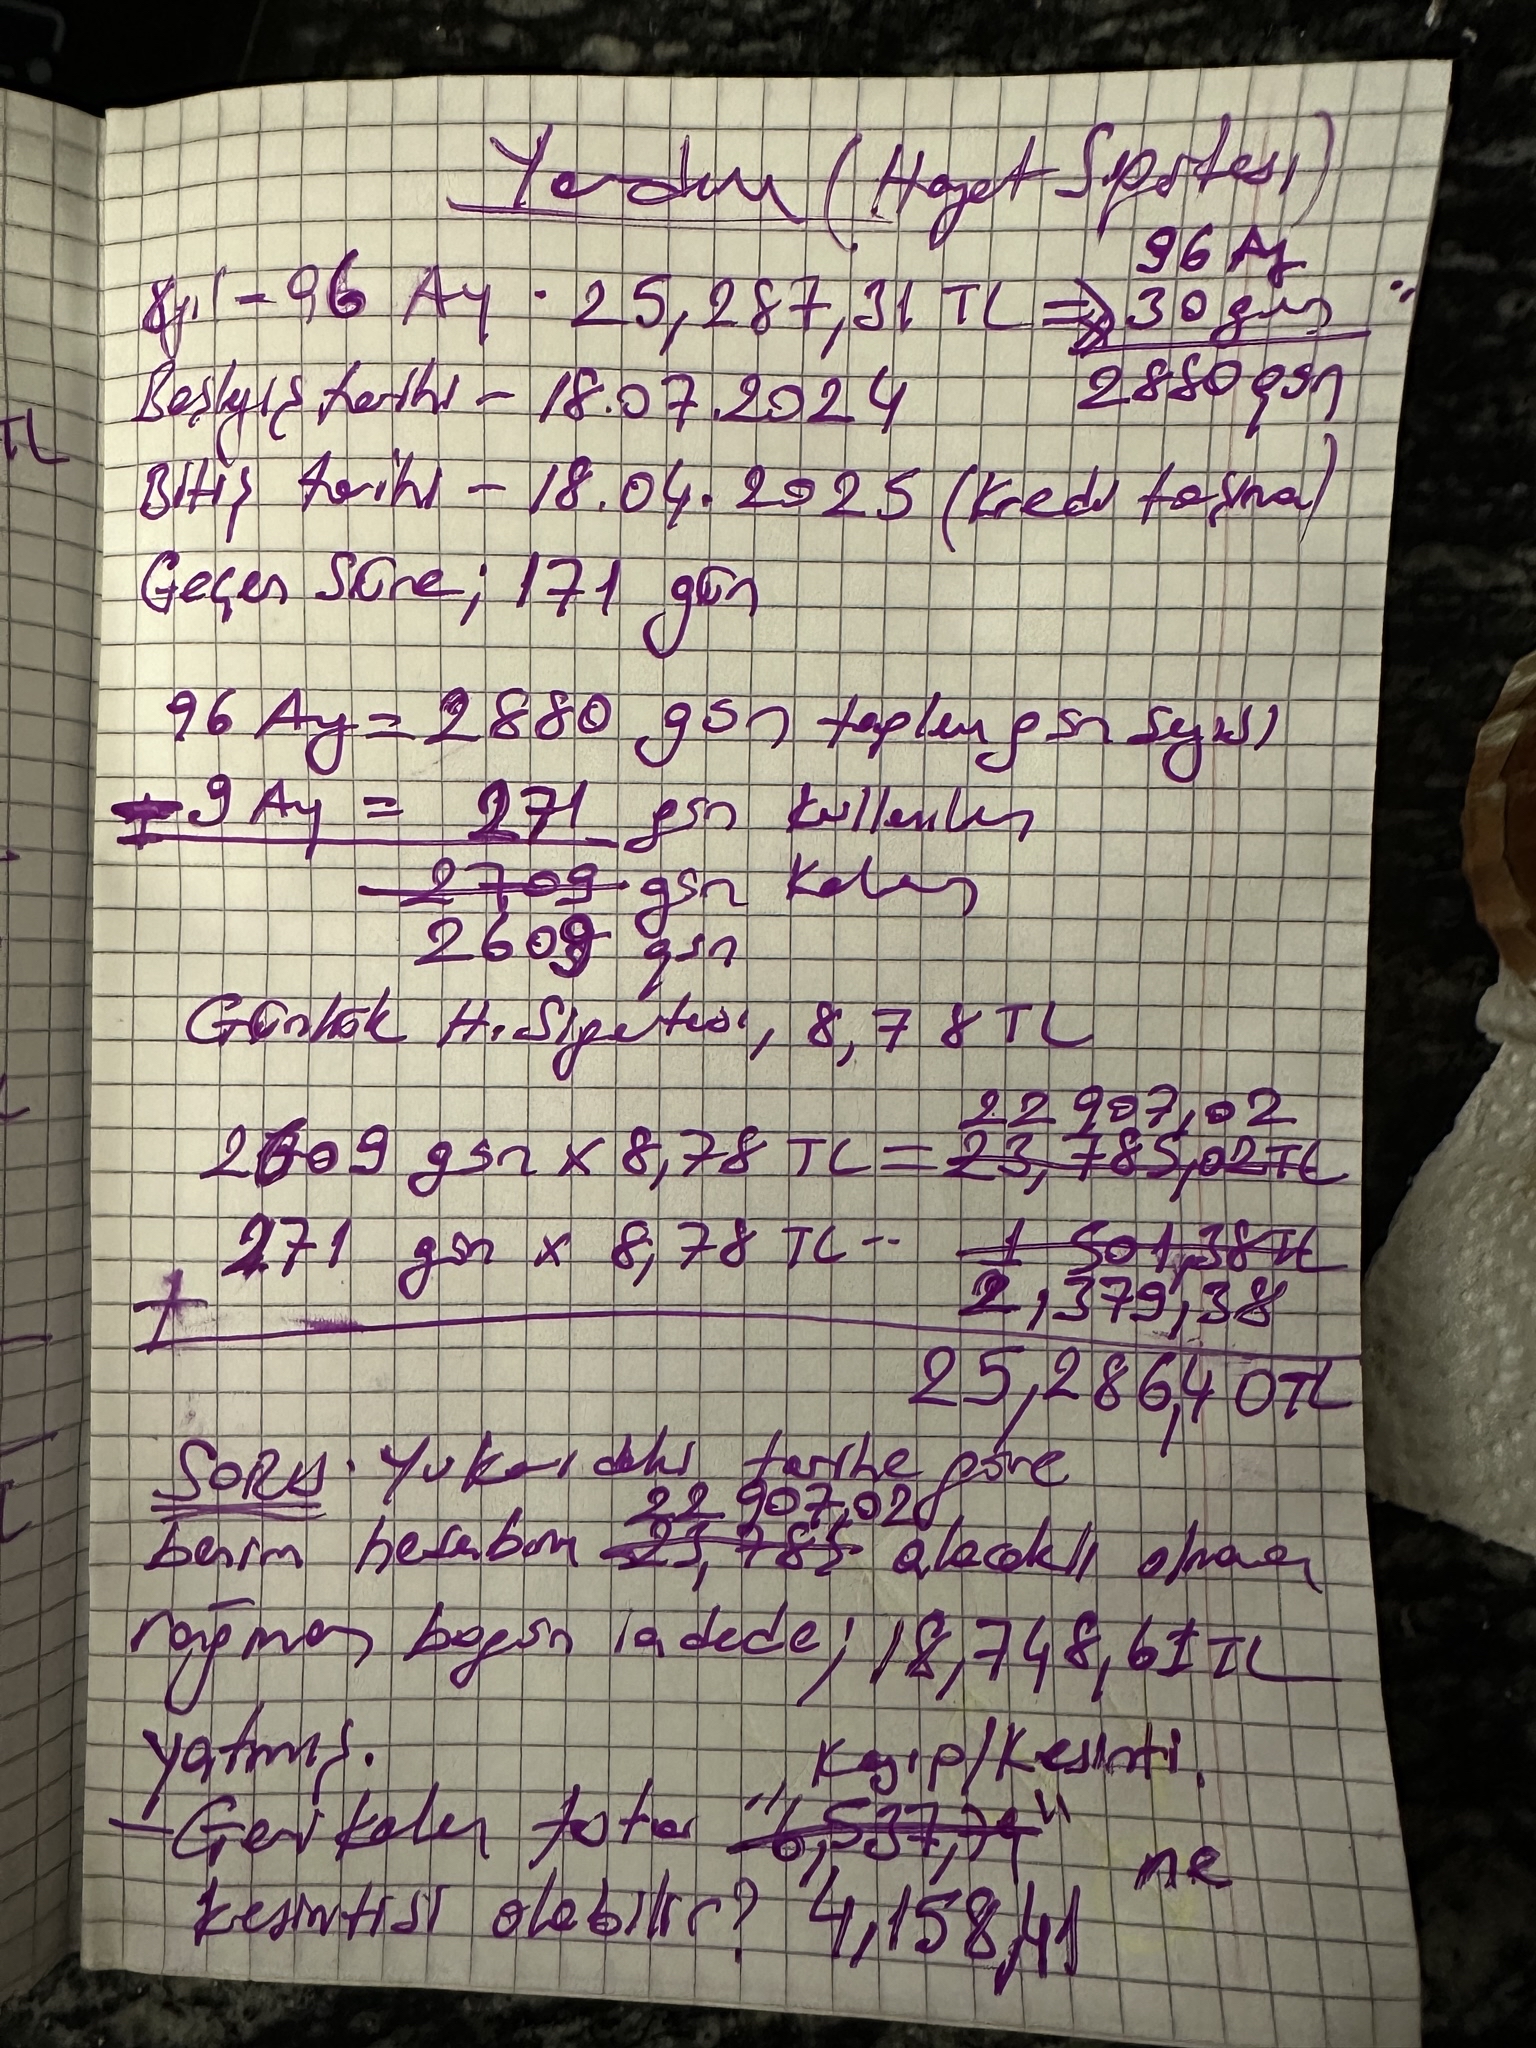 Yardım (Hayat Sigortası)
8yıl - 96 Ay - 25,287,31 TL => 96 Ay
x 30 gün
2880 gün
Başlgıç tarihi - 18.07.2024
Bitiş tarihi - 18.04.2025 (Kredi taşıma)
Geçen Süre; 171 gün
96 Ay = 2880 gün toplam gün sayısı
- 9 Ay = 271 gün kullanılan
2709 gün kalan
2609 gün
Günlük H. Sigortası, 8,78 TL
22 907,02
2609 gün x 8,78 TL = 23,785,02 TL
271 gün x 8,78 TL -- 1 501,38 TL
2,379,38
+
25,286,40 TL
SORU. Yukarıdaki tarihe göre
22 907,02
benim hesabım 23,785 alacaklı olmam
rağmen bugün iadede; 18,748,61 TL
yatmış. Kayıp/Kesinti.
- Geri kalan tutar "6,537,71" ne
kesintisi olabilir? 4,158,41
TL